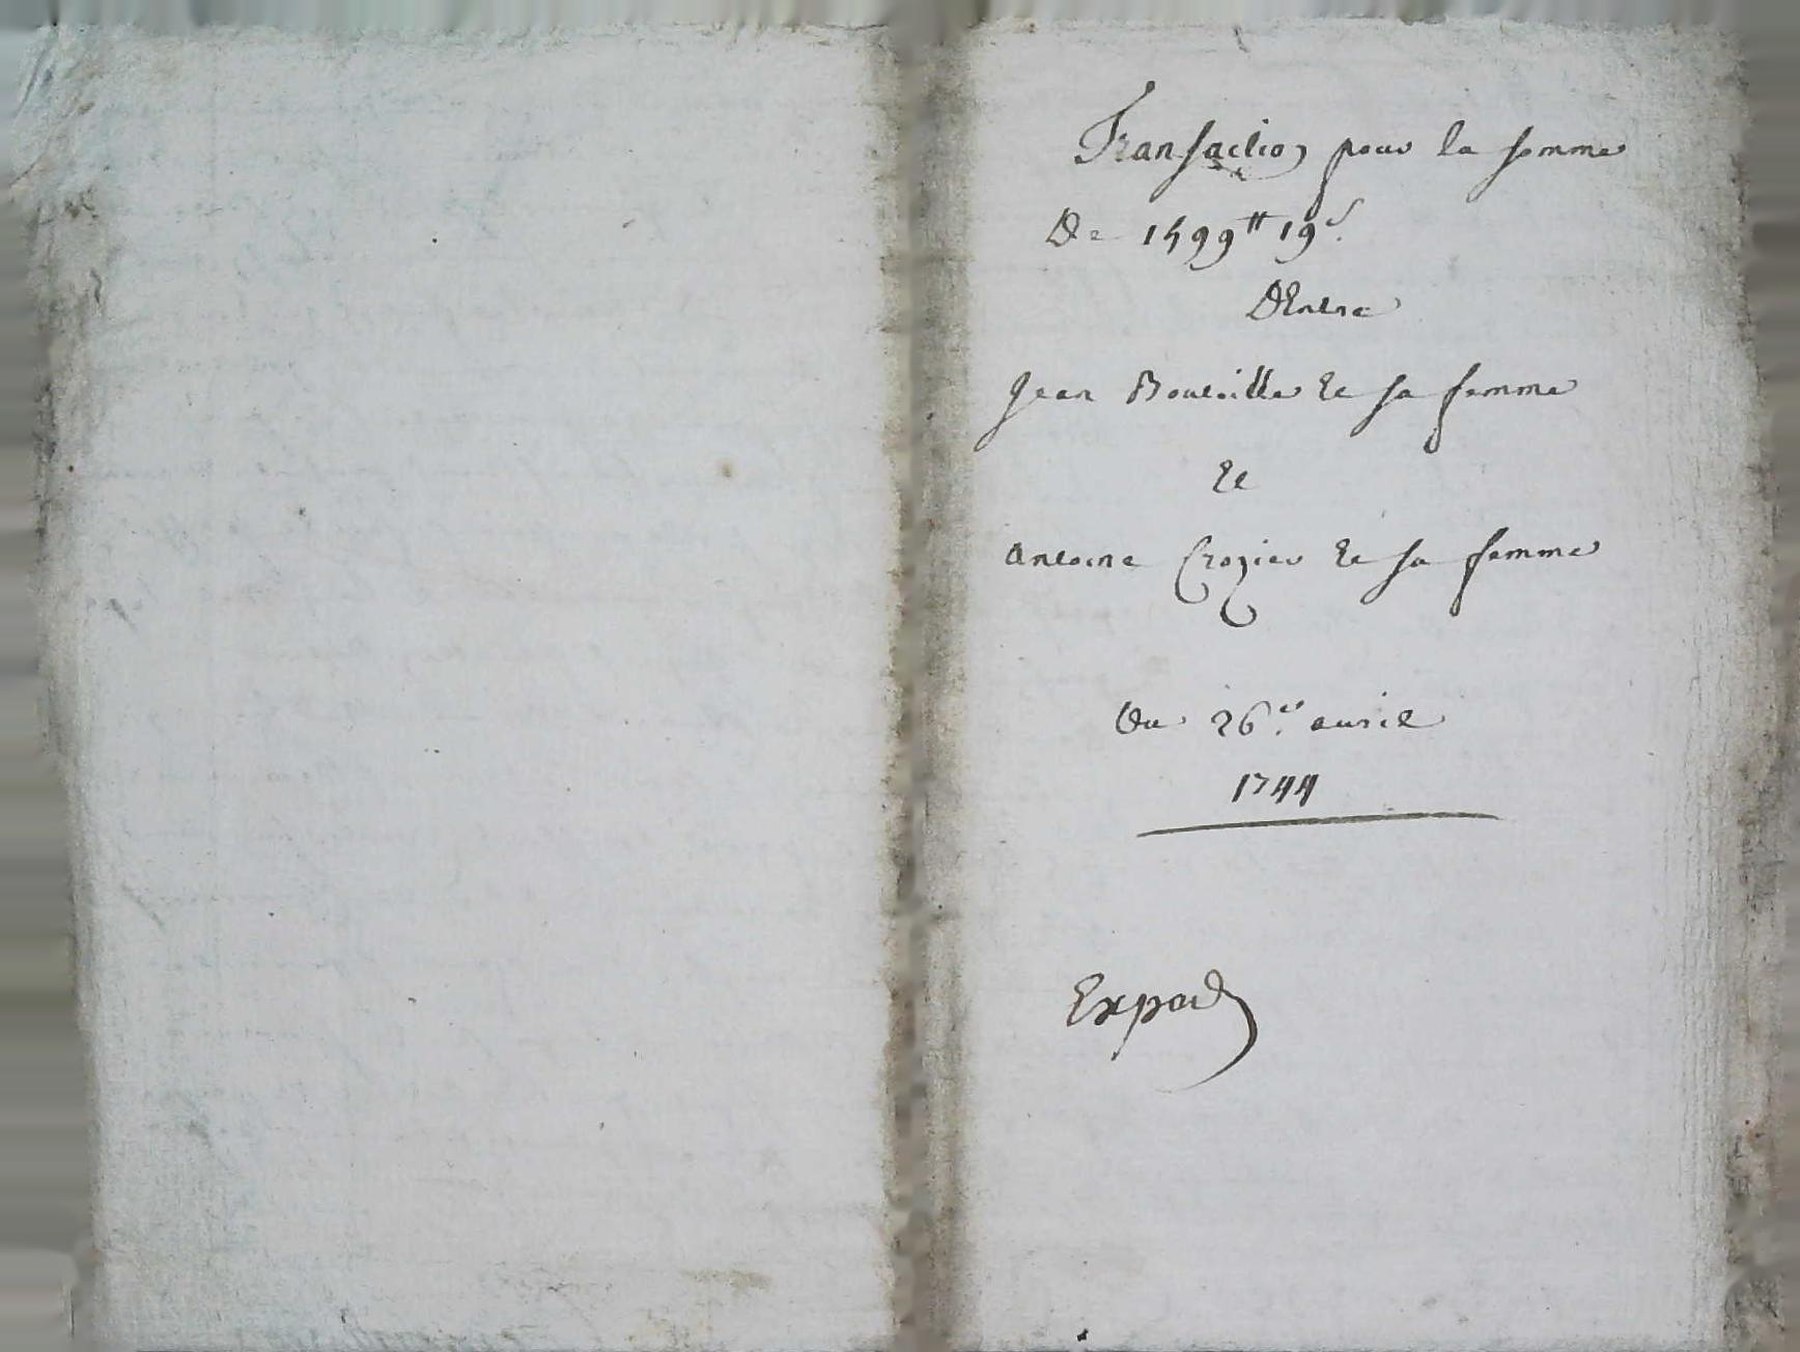 Transaction pour la somme
De 1499ᵗᵗ 19ˢ.
DEntre
Jean Bouteille Et sa femme
Et
Antoine Crozier Et sa femme
Du 26ᵉ. auril
1744
Exped